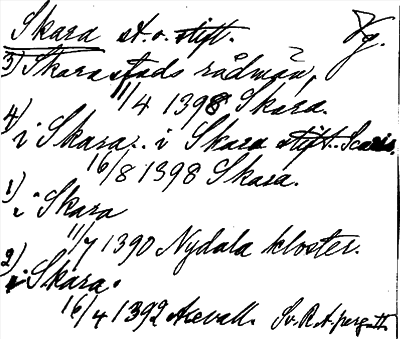 Skara st. o. stift. Vg.
3) Skara stads rådmän,
11/4 1398 Skara.
4) i Skara.. i Skara stift.. Scaris.
16/8 1398 Skara.
1) i Skara
11/7 1390 Nydala kloster.
2) i Skara.
16/4 1392 Axevall. Sv. R. A. perg. tt.